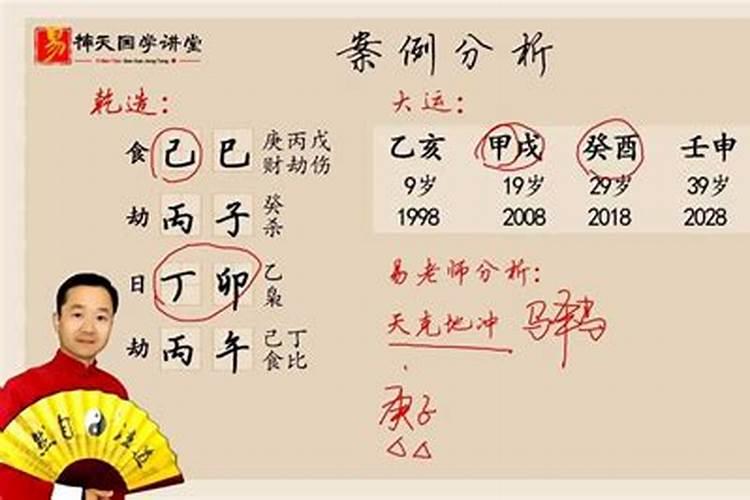 易 栴天国学讲堂
案例分析
乾造：
大运：
食 己 巳 庚丙戊
财劫伤
劫 丙 子 癸
杀
日 丁 卯 乙
枭
劫 丙 午 己丁
食比
乙亥 甲戌 癸酉 壬申
9岁 19岁 29岁 39岁
1998 2008 2018 2028
易老师分析：
天克地冲
庚子
然自法道